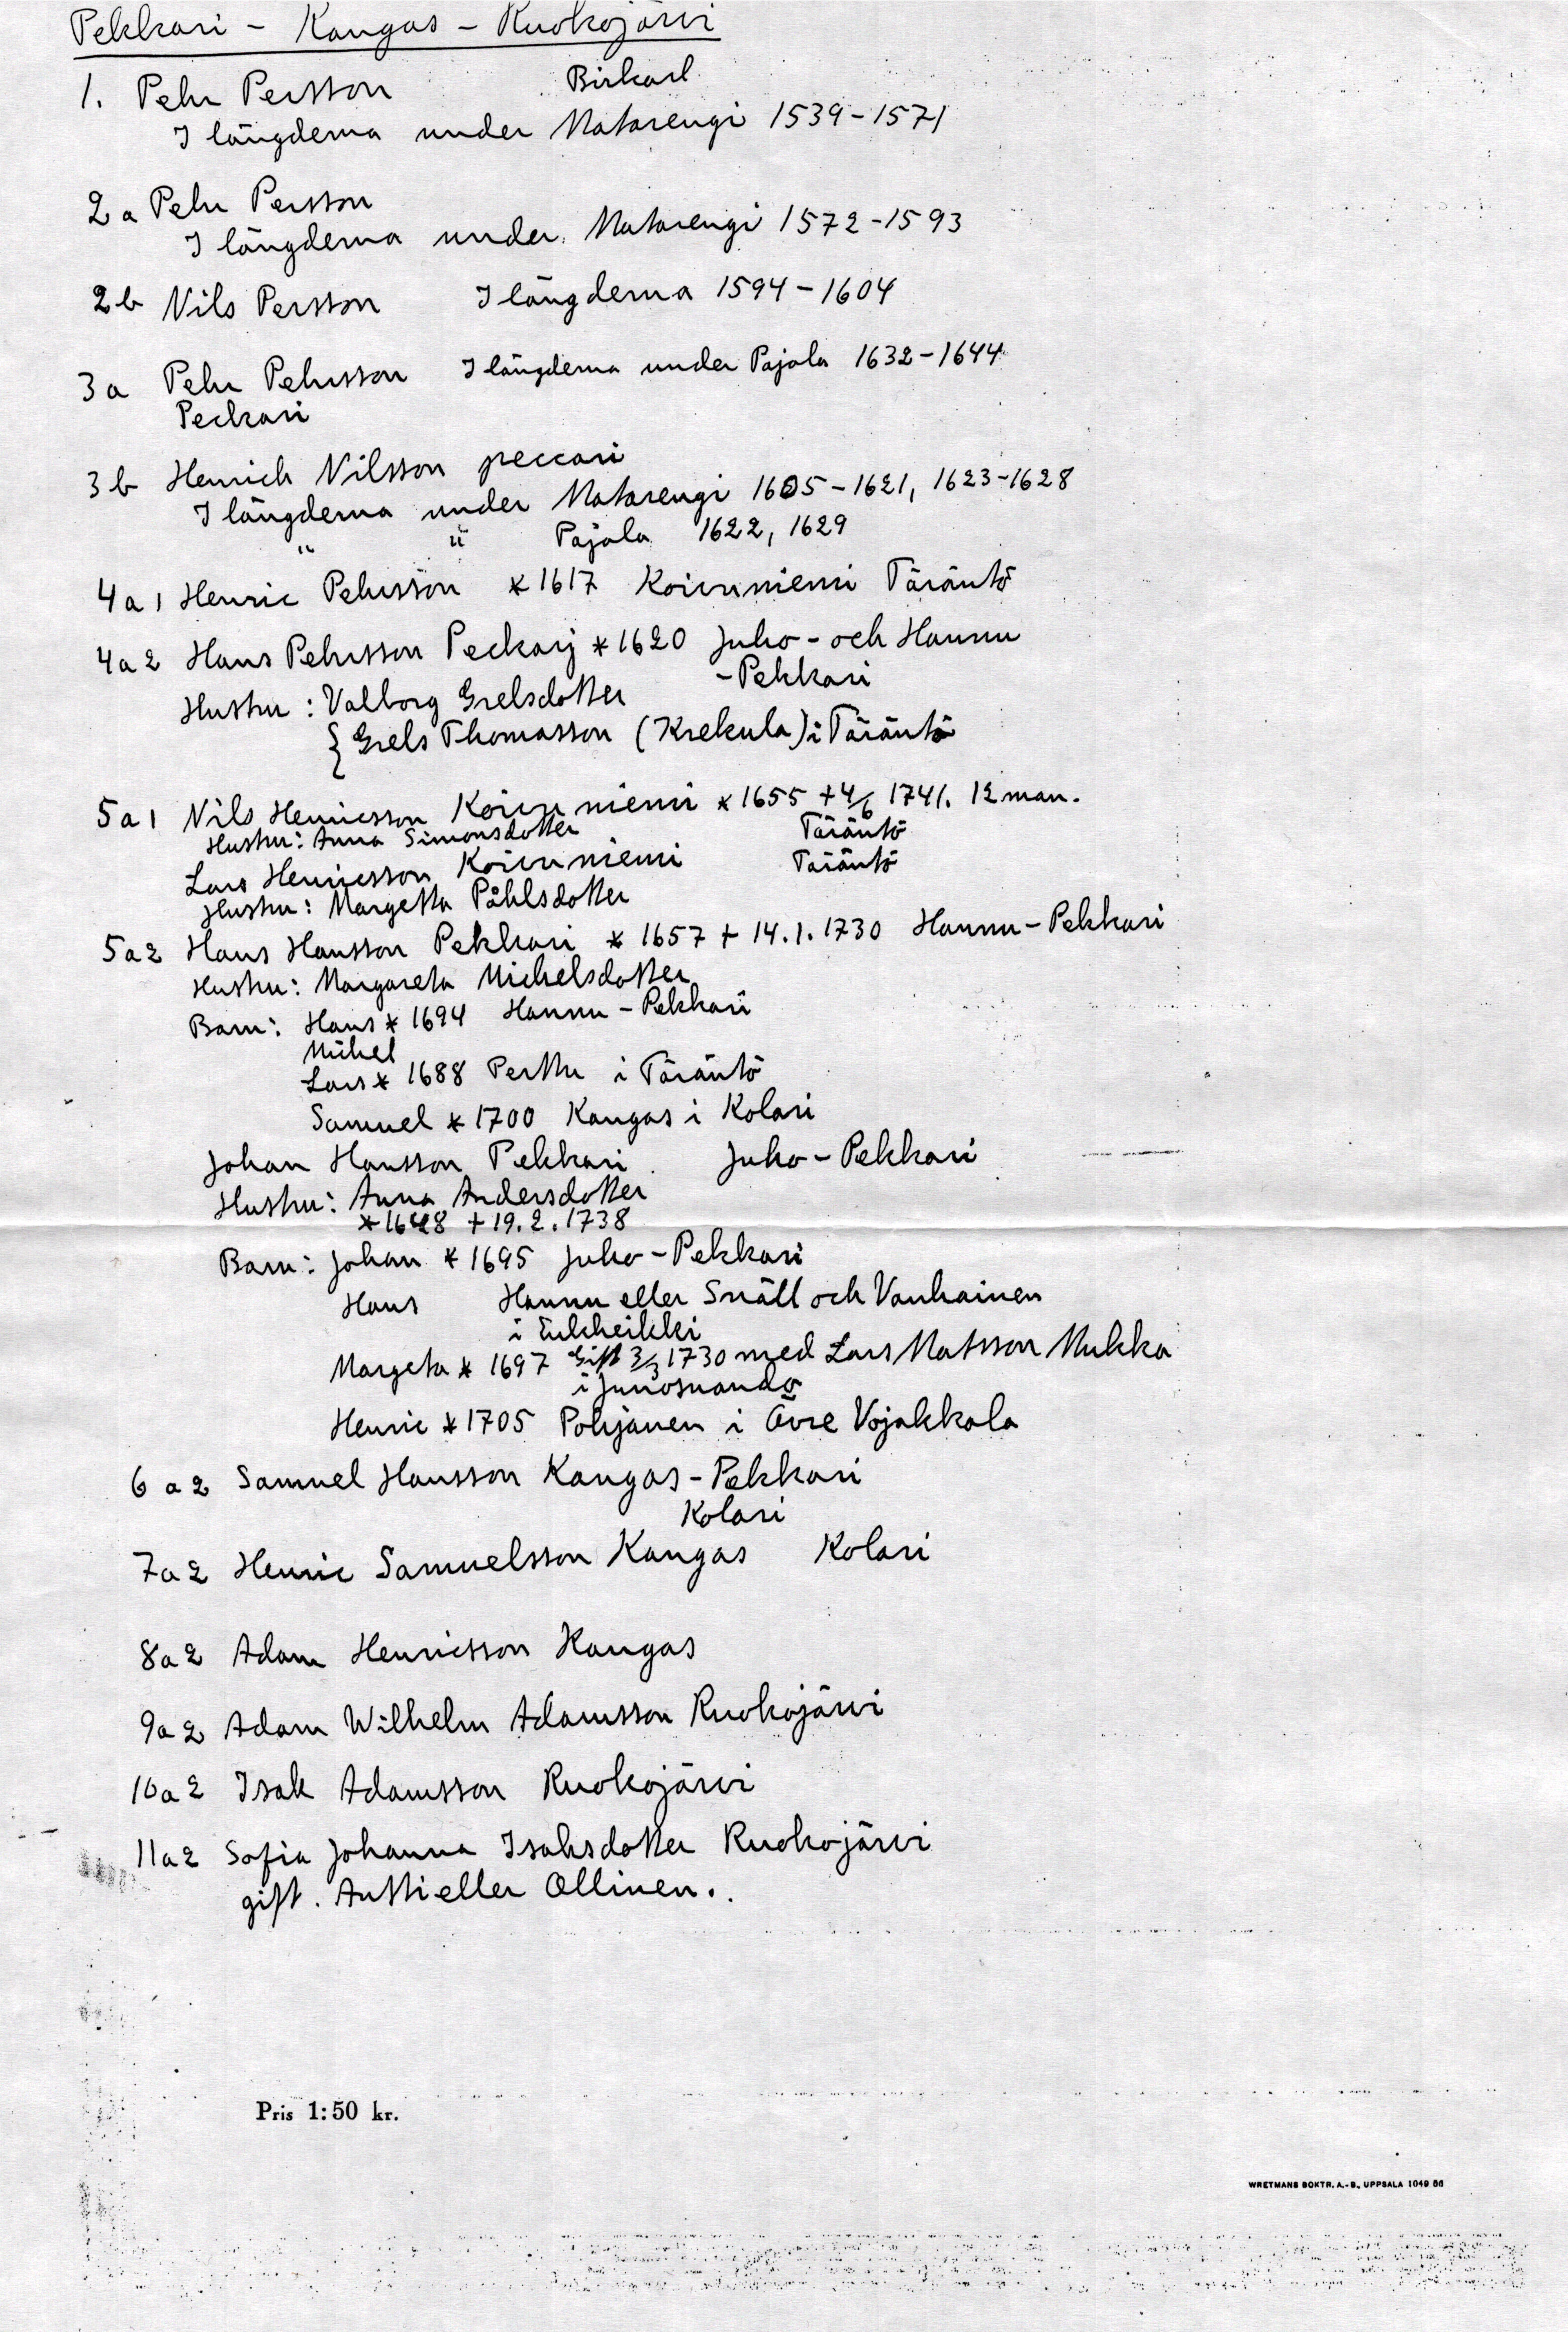 Pekkari - Kangas - Ruokojärvi
1. Pehr Persson Birkarl
I längderna under Matarengi 1539-1571
2a Pehr Persson
I längderna under Matarengi 1572-1593
2b Nils Persson I längderna 1594-1604
3a Pehr Pehrsson I längderna under Pajala 1632-1644
Peckari
3b Henrich Nilsson peccari
I längderna under Matarengi 1605-1621, 1623-1628
" " Pajala 1622, 1629
4a1 Henric Pehrsson *1617 Koivuniemi Täräntö
4a2 Hans Pehrsson Peckarj *1620 Juho- och Hannu
-Pekkari
Hustru: Valborg Grelsdotter
{ Grels Thomasson (Krekula) i Täräntö
5a1 Nils Henricsson Koivuniemi *1655 +4/6 1741. 12 man.
Hustru: Anna Simonsdotter Täräntö
Lars Henricsson Koivuniemi Täräntö
Hustru: Margetta Påhlsdotter
5a2 Hans Hansson Pekkari *1657 + 14.1.1730 Hannu-Pekkari
Hustru: Margareta Michelsdotter
Barn: Hans *1694 Hannu-Pekkari
Michel
Lars *1688 Perttu i Täräntö
Samuel *1700 Kangas i Kolari
Johan Hansson Pekkari Juho-Pekkari
Hustru: Anna Andersdotter
+19.2.1738
Barn: Johan *1695 Juho-Pekkari
Hans Hannu eller Snäll och Vanhainen
i Erkheikki
Margeta *1697 Gift 3/3 1730 med Lars Matsson Mukka
i Junosuando
Henric *1705 Pohjanen i Övre Vojakkala
6a2 Samuel Hansson Kangas-Pekkari
Kolari
7a2 Henric Samuelsson Kangas Kolari
8a2 Adam Henricsson Kangas
9a2 Adam Wilhelm Adamsson Ruokojärvi
10a2 Isak Adamsson Ruokojärvi
11a2 Sofia Johanna Isaksdotter Ruokojärvi
gift. Antti eller Ollinen.
Pris 1:50 kr.
WRETMANS BOKTR. A.-B., UPPSALA 1049 56